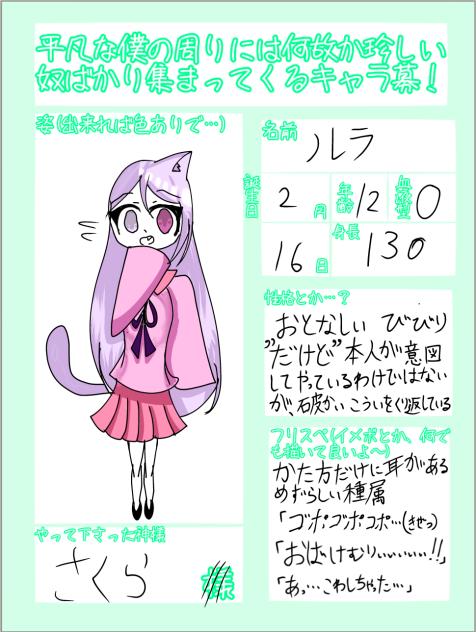 平凡な僕の周りには何故か珍しい
奴ばかり集まってくるキャラ募!
姿(出来れば色ありで…)
名前
ルラ
誕生日
2月
16日
年齢
12
血液型
O
身長
130
性格とか…?
おとなしい びびり
"だけど"本人が意図
してやっているわけではない
が、破かいこういをくり返している
フリスペ(イメボとか、何で
も描いて良いよ〜)
かた方だけに耳がある
めずらしい種属
「ゴポゴポコポ…(きぜつ)
「おばけむりぃぃぃぃぃ!!」
「あっ…こわしちゃった…」
やって下さった神様
さくら
様